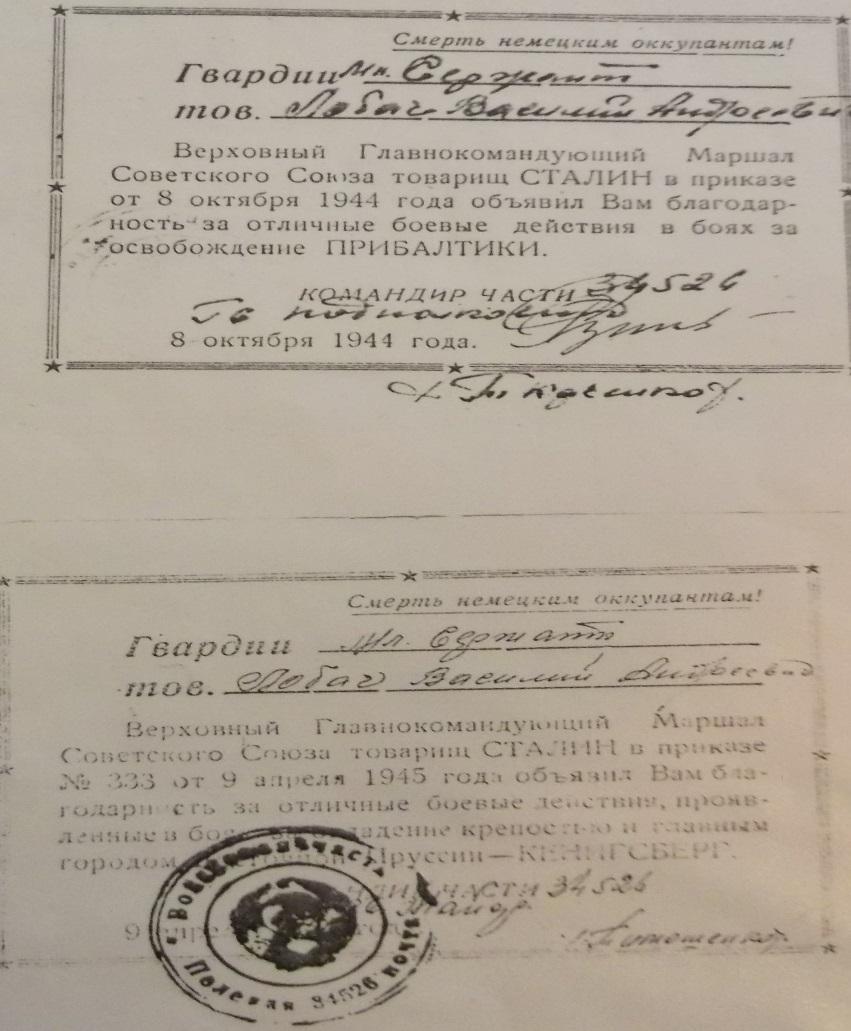 Смерть немецким оккупантам!
Гвардии мл. Сержант
тов. Лобач Василий Андреевич
Верховный Главнокомандующий Маршал
Советского Союза товарищ СТАЛИН в приказе
от 8 октября 1944 года объявил Вам благодар-
ность за отличные боевые действия в боях за
освобождение ПРИБАЛТИКИ.
КОМАНДИР ЧАСТИ 34526
Гв подполковник
8 октября 1944 года.
Смерть немецким оккупантам!
Гвардии мл. Сержант
тов. Лобач Василий Андреевич
Верховный Главнокомандующий Маршал
Советского Союза товарищ СТАЛИН в приказе
№ 333 от 9 апреля 1945 года объявил Вам бла-
годарность за отличные боевые действия, прояв-
ленные в боях за овладение крепостью и главным
городом Восточной Пруссии—КЕНИГСБЕРГ.
ЧАСТИ 34526
9 апре
Полевая почта 34526